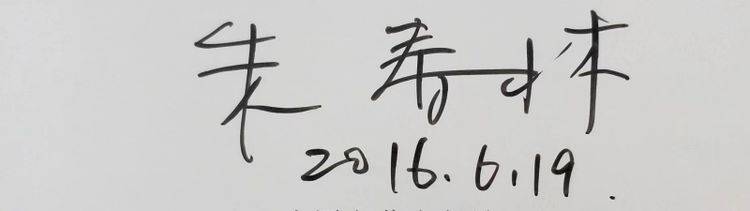 朱春林
2016.6.19.